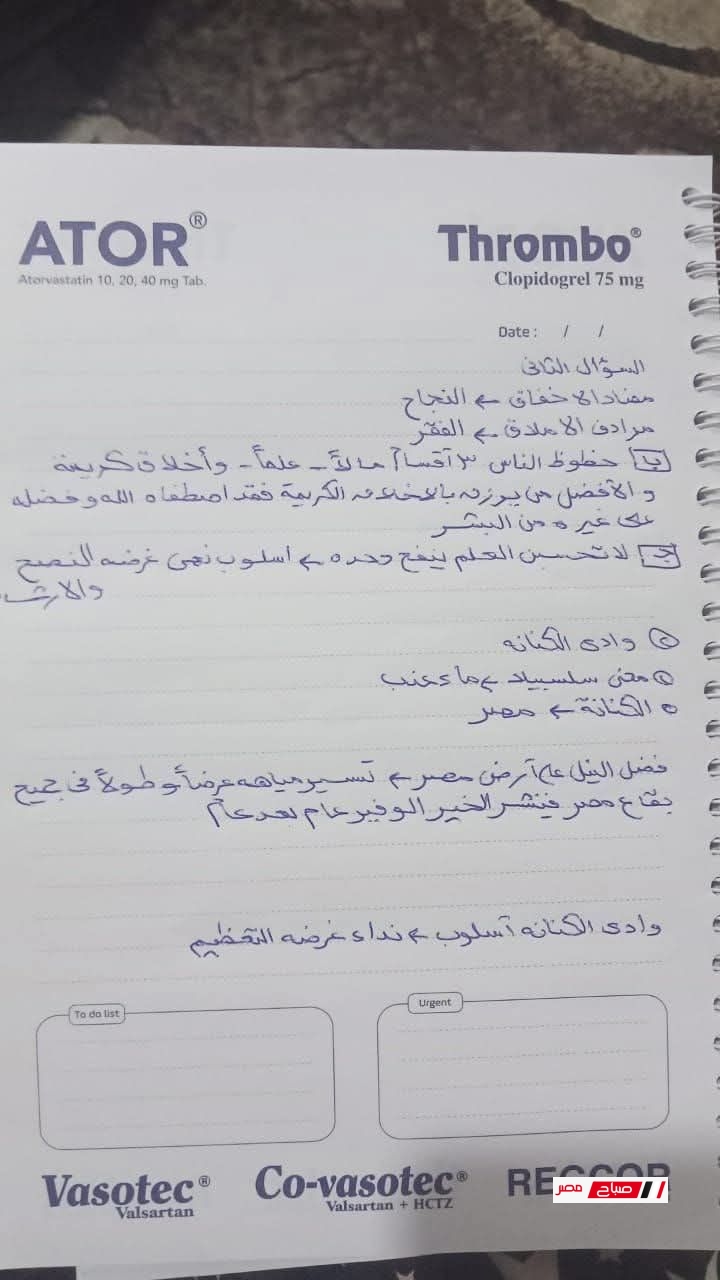 ATOR®
Atorvastatin 10, 20, 40 mg Tab.
Thrombo®
Clopidogrel 75 mg
Date : / /
السؤال الثانى
مضاد الاخفاق ← النجاح
مرادف الاملاق ← الفقر
ب حظوظ الناس ٣ أقسام مالاً - علماً - وأخلاق كريمة
والأفضل من يرزق بالاخلاق الكريمة فقد اصطفاه الله وفضله
على غيره من البشر
ج لا تحسبن العلم ينفع وحده ← اسلوب نهى غرضه النصح
والارشا
وادى الكنانه
معنى سلسبيلا ← ماء عذب
الكنانة ← مصر
فضل النيل على أرض مصر ← تسير مياهه عرضاً وطولاً فى جميع
بقاع مصر فينشر الخير الوفير عام بعد عام
وادى الكنانه أسلوب ← نداء غرضه التعظيم
To do list
Urgent
Vasotec®
Valsartan
Co-vasotec®
Valsartan + HCTZ
صباح مصر